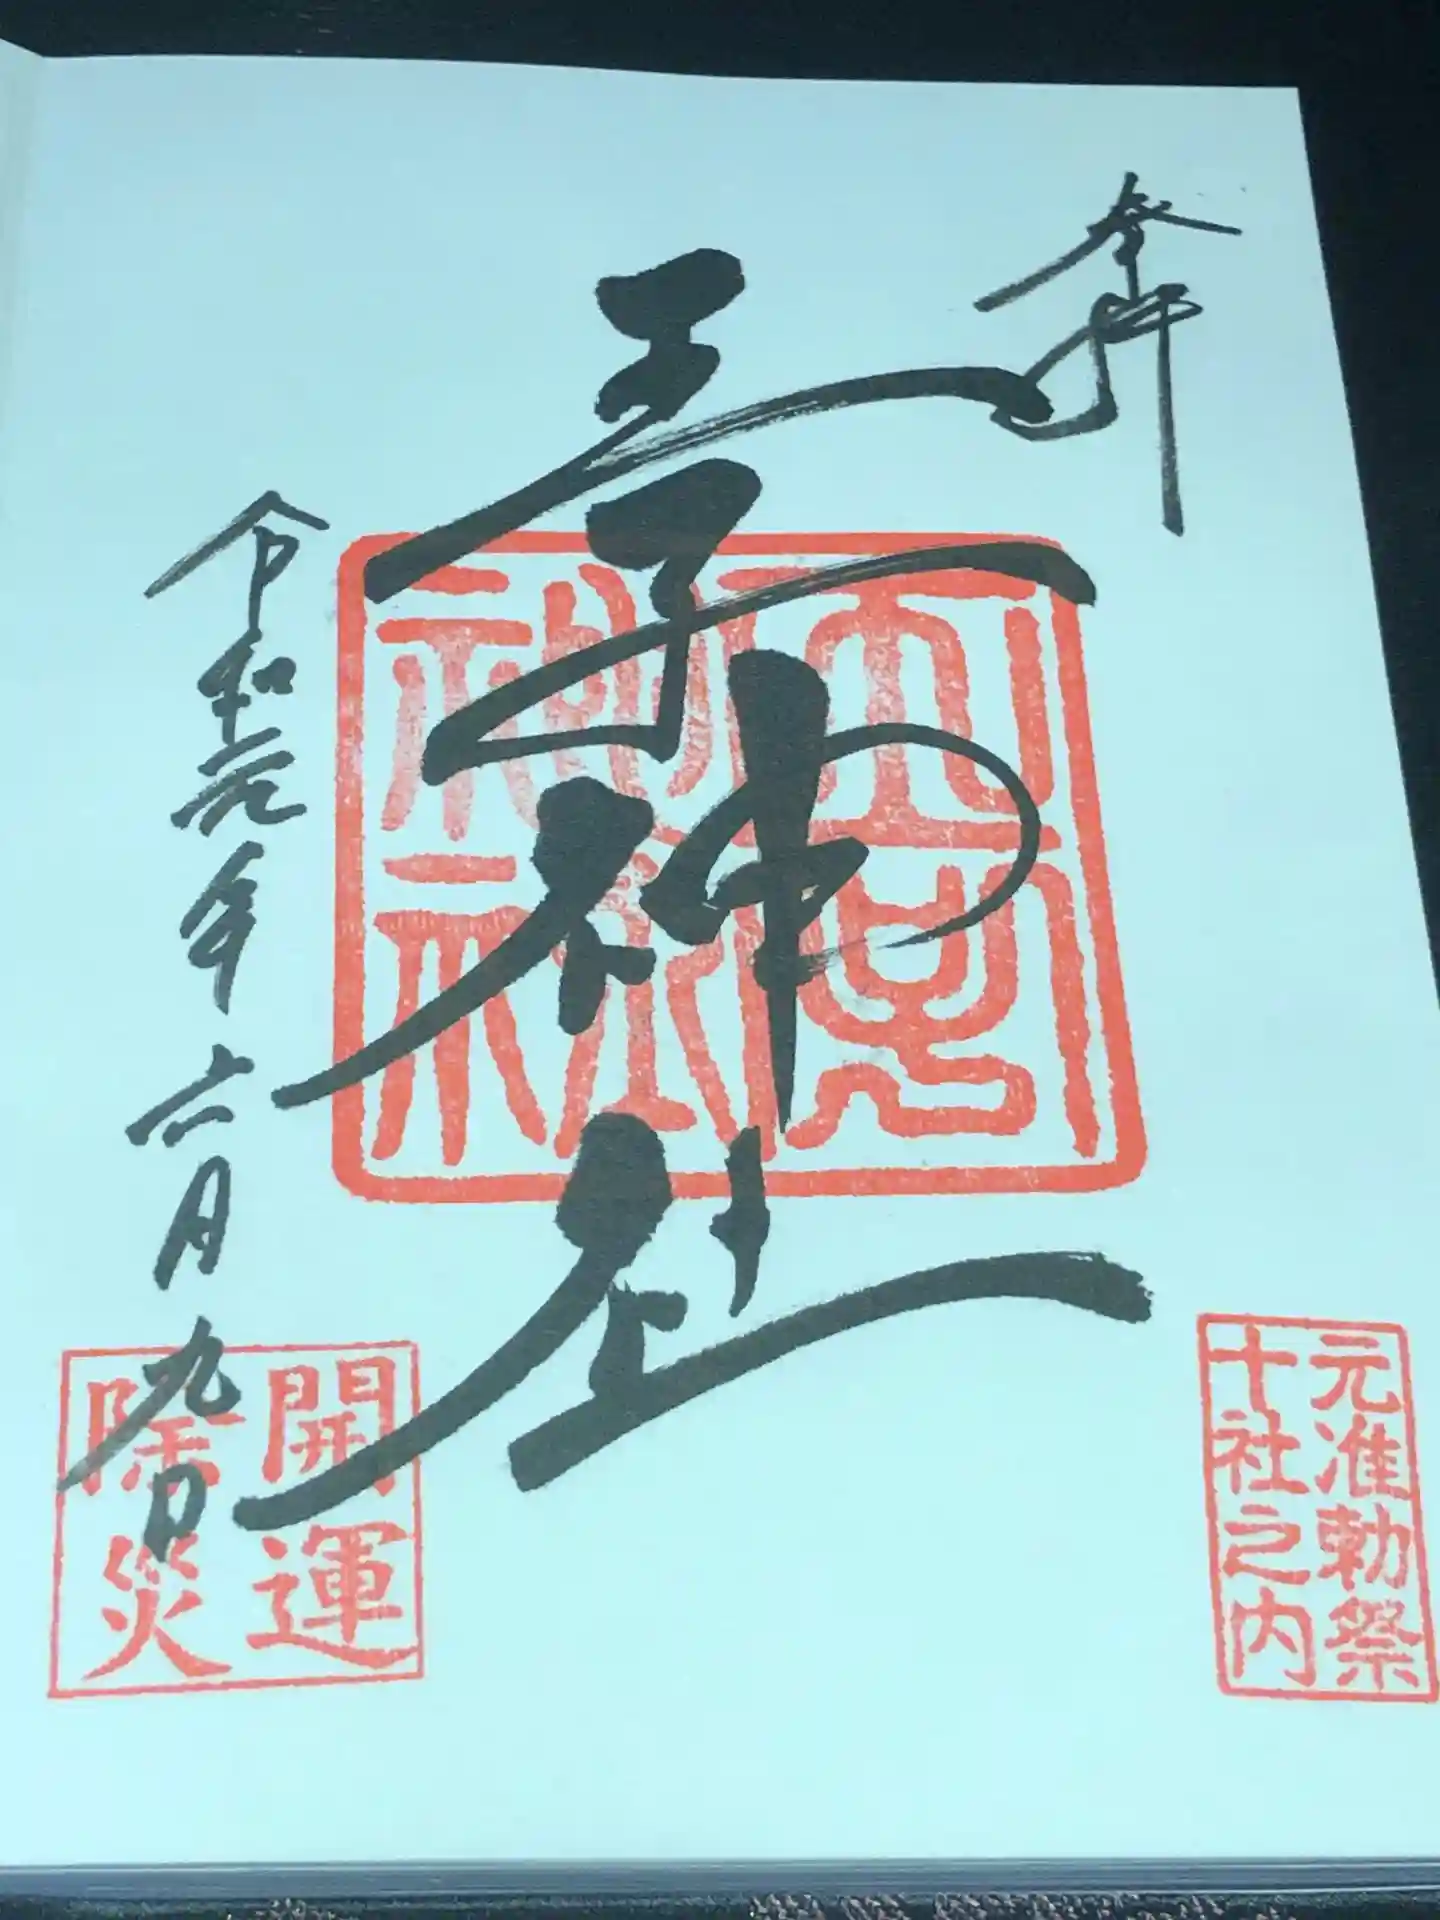 参拝
王子神社
王子神社
令和元年六月九日
開運
除災
元准勅祭
十社之内